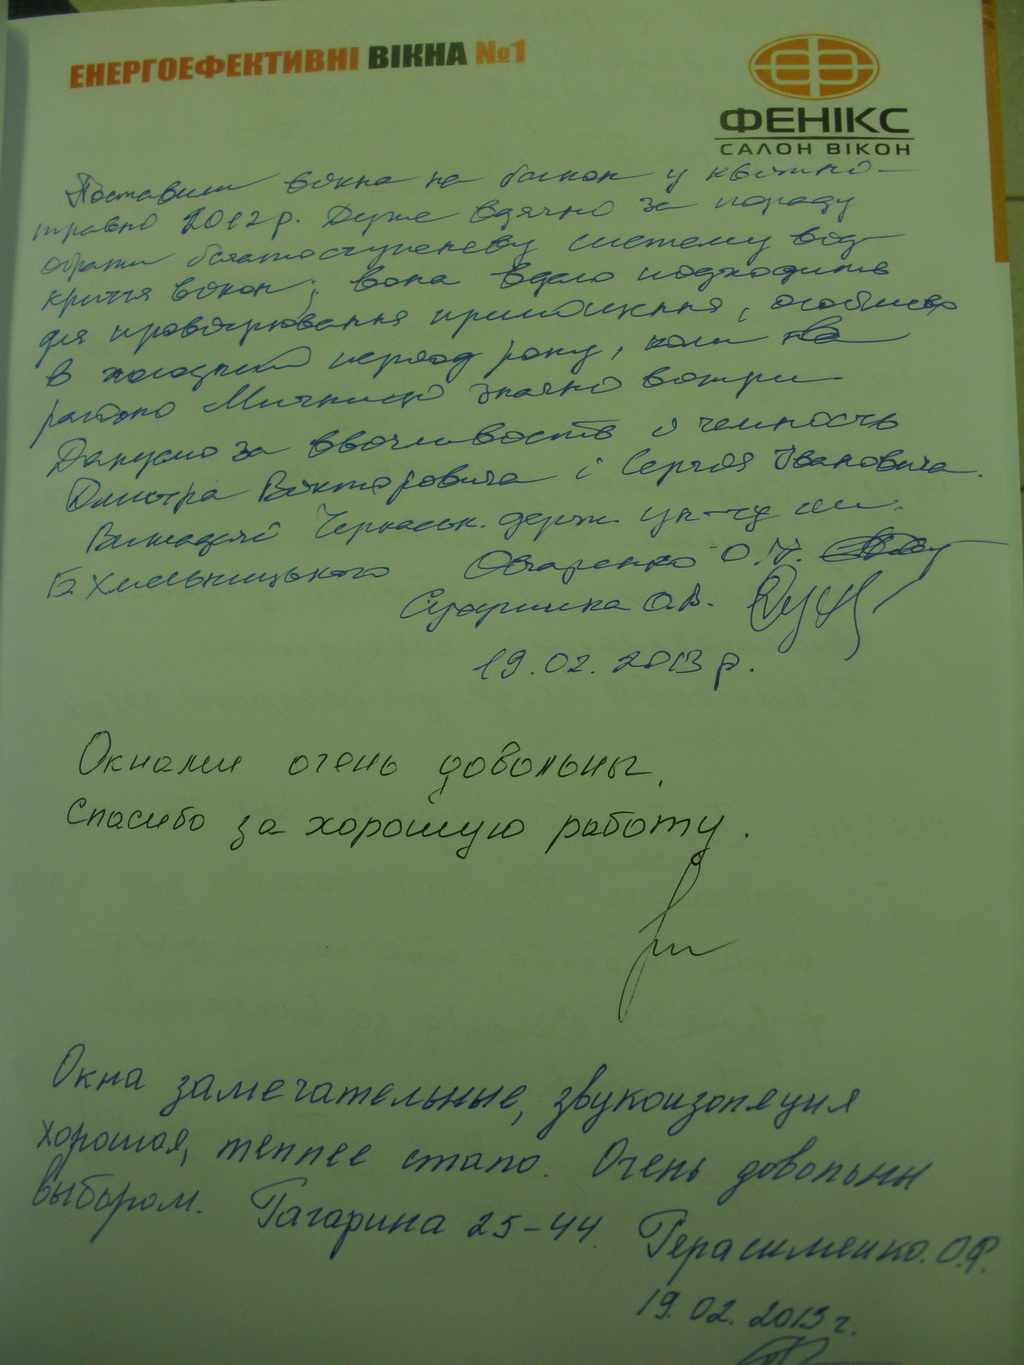 ЕНЕРГОЕФЕКТИВНІ ВІКНА №1
ФЕНІКС
САЛОН ВІКОН
Поставили вікна на балкон у квітні-
травні 2012 р. Дуже вдячні за пораду
обрати багатоступеневу систему від-
криття вікон; вона вдало підходить
для провітрювання приміщення, особливо
в холодний період року, коли на
районі Митниця значні вітри
Дякуємо за ввічливість і чемність
Дмитра Вікторовича і Сергія Івановича.
Викладачі Черкаськ. держ. ун-ту ім.
Б. Хмельницького Овчаренко О.
О.В.
19.02.2013 р.
Окнами очень довольны.
Спасибо за хорошую работу.
Окна замечательные, звукоизоляция
хорошая, теплее стало. Очень довольны
выбором. Гагарина 25-44. Герасименко. О.Ф.
19.02.2013 г.